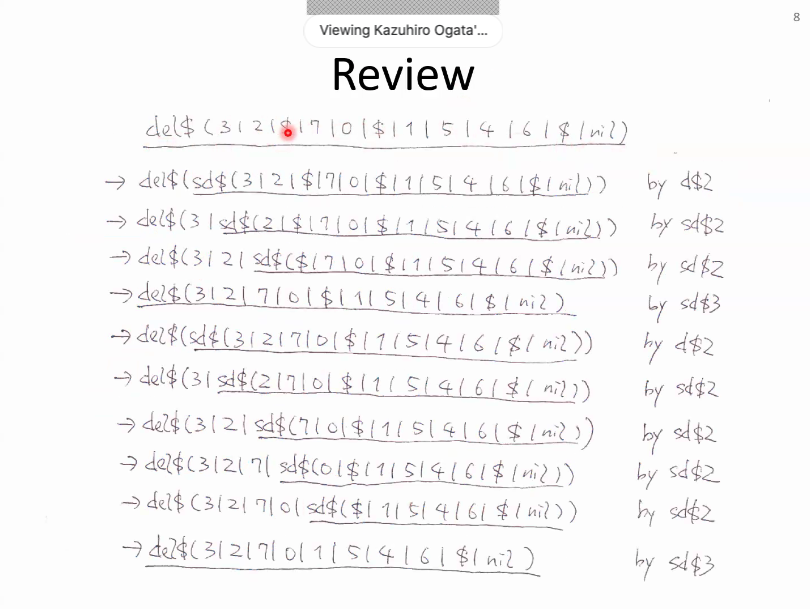 8
Viewing Kazuhiro Ogata'...
Review
del$(3|2|$|7|0|$|1|5|4|6|$|nil)
→ del$(sd$(3|2|$|7|0|$|1|5|4|6|$|nil)) by d$2
→ del$(3|sd$(2|$|7|0|$|1|5|4|6|$|nil)) by sd$2
→ del$(3|2|sd$($|7|0|$|1|5|4|6|$|nil)) by sd$2
→ del$(3|2|7|0|$|1|5|4|6|$|nil) by sd$3
→ del$(sd$(3|2|7|0|$|1|5|4|6|$|nil)) by d$2
→ del$(3|sd$(2|7|0|$|1|5|4|6|$|nil)) by sd$2
→ del$(3|2|sd$(7|0|$|1|5|4|6|$|nil)) by sd$2
→ del$(3|2|7|sd$(0|$|1|5|4|6|$|nil)) by sd$2
→ del$(3|2|7|0|sd$($|1|5|4|6|$|nil)) by sd$2
→ del$(3|2|7|0|1|5|4|6|$|nil) by sd$3